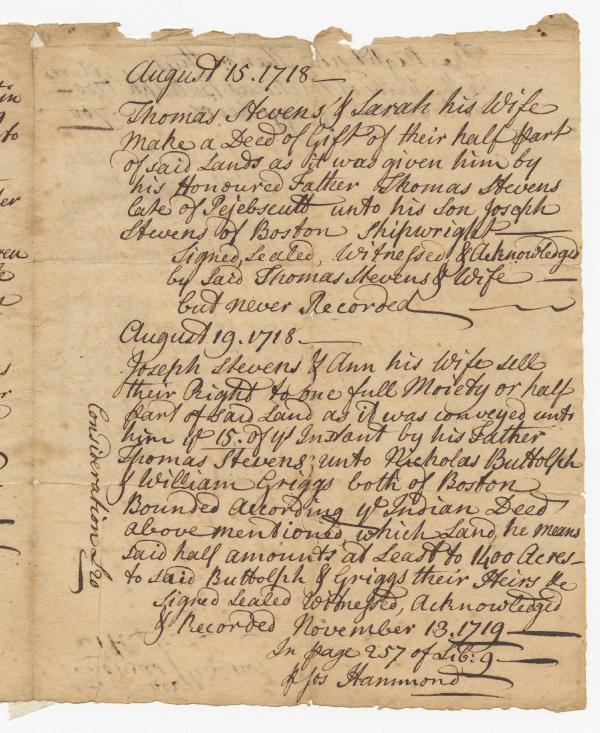 August 15. 1718
Thomas Stevens & Sarah his Wife
make a Deed of Gift of their half part
of said Lands as it was given him by
his Honoured Father Thomas Stevens
late of Pejebscutt unto his son Joseph
Stevens of Boston Shipwright
Signed, Sealed, Witnessed & Acknowledged
by Said Thomas Stevens & Wife
but never Recorded
August 19. 1718.
Joseph Stevens & Ann his Wife sell
their Right to one full Moiety or half
part of Said Land as it was conveyed unto
him ye 15. of ye Instant by his Father
Thomas Stevens; unto Nicholas Buttolph
& William Griggs both of Boston
Bounded According ye Indian Deed
above mentioned which Land, he means
said half amounts at Least to 1400 Acres
to said Buttolph & Griggs their Heirs &c
Signed Sealed Witnessed, Acknowledged
& Recorded November 13. 1719
In page 257 of Lib: 9
p Jos Hammond
Consideration